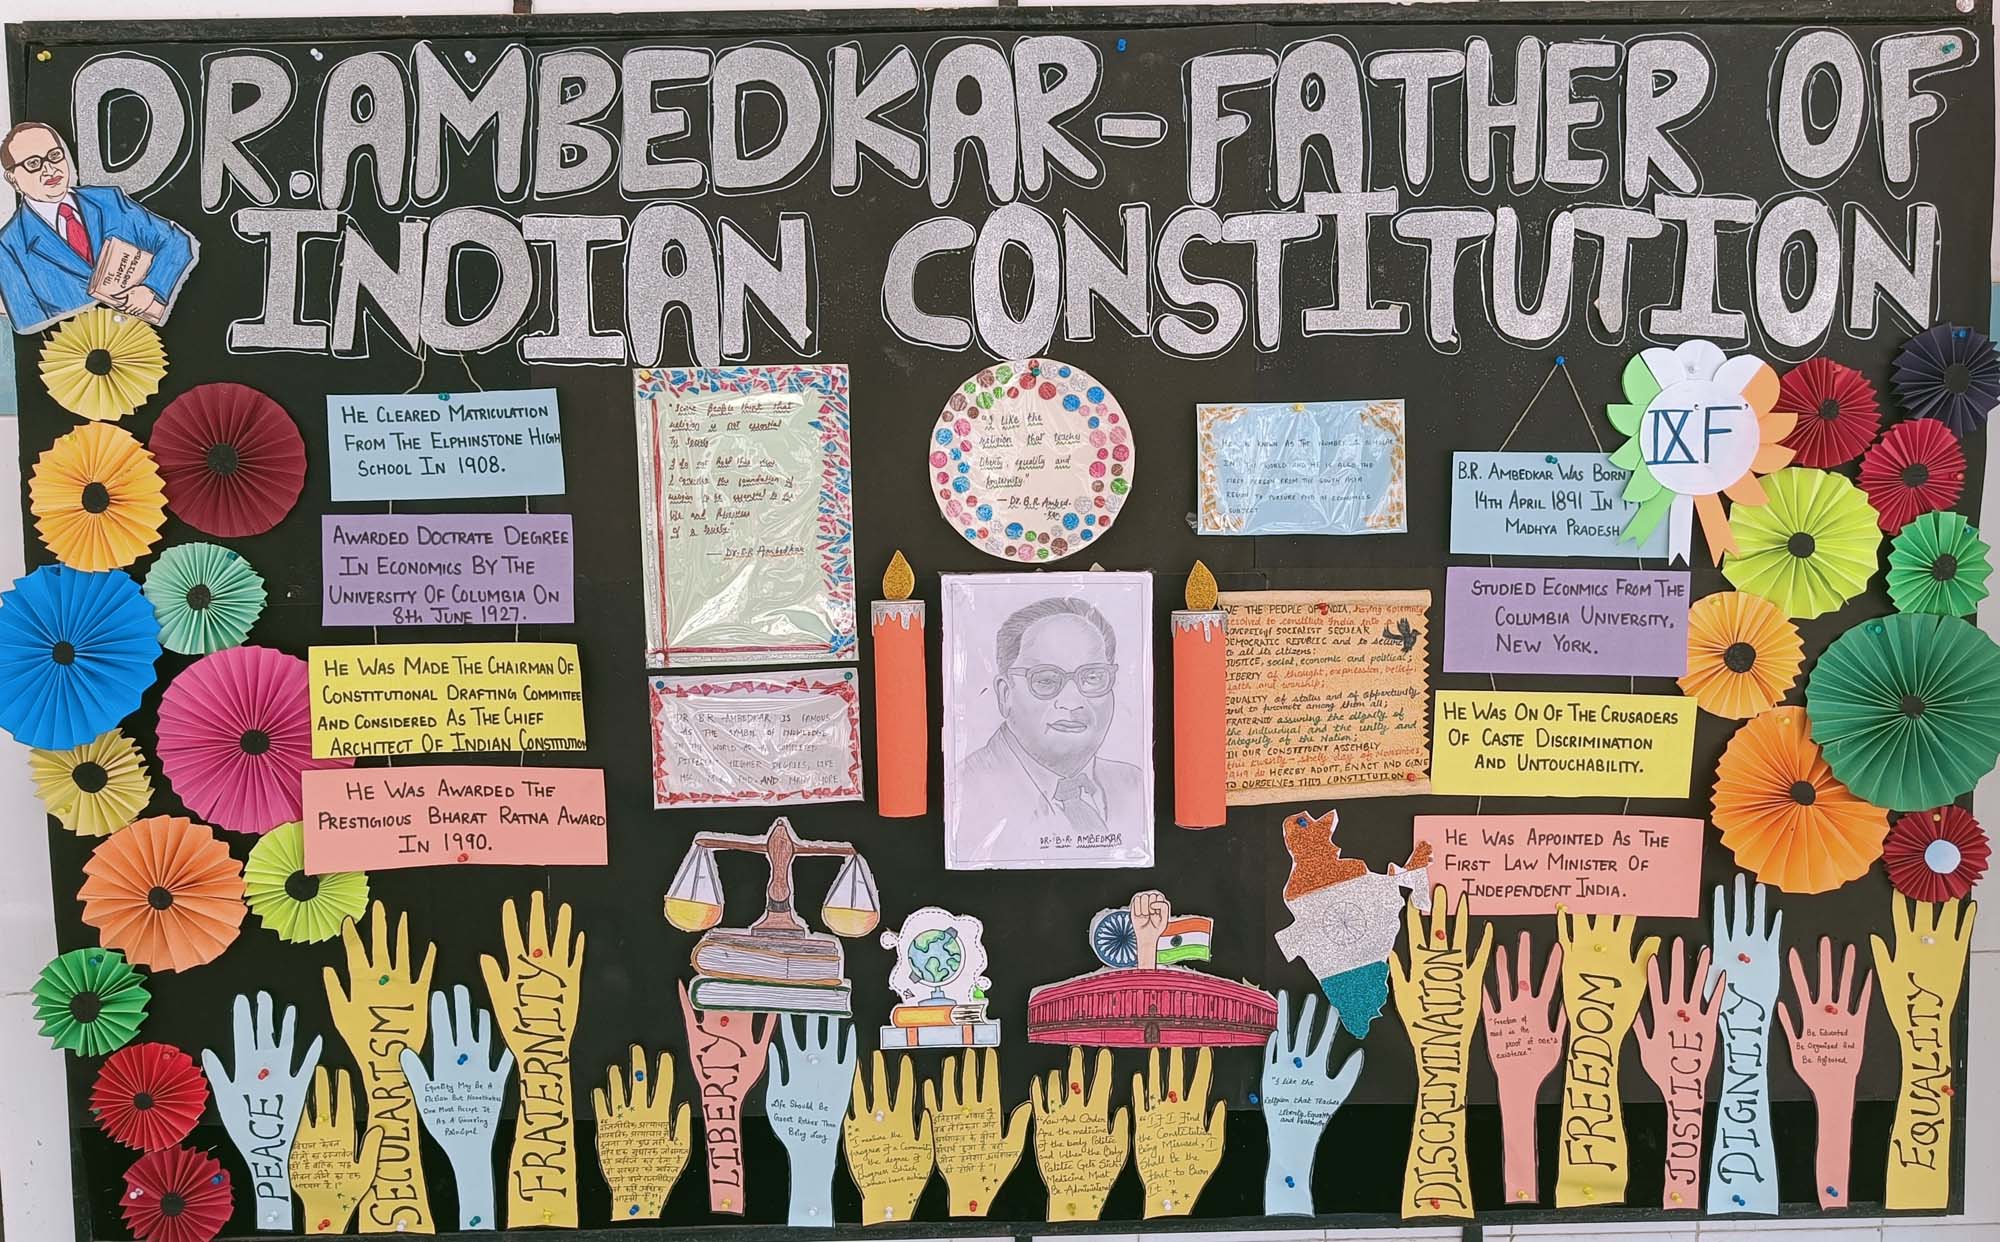 DR. AMBEDKAR - FATHER OF
INDIAN CONSTITUTION
THE
INDIAN
HE CLEARED MATRICULATION
FROM THE ELPHINSTONE HIGH
SCHOOL IN 1908.
AWARDED DOCTRATE DEGREE
IN ECONOMICS BY THE
UNIVERSITY OF COLUMBIA ON
8th JUNE 1927.
HE WAS MADE THE CHAIRMAN OF
CONSTITUTIONAL DRAFTING COMMITTEE
AND CONSIDERED AS THE CHIEF
ARCHITECT OF INDIAN CONSTITUTION
HE WAS AWARDED THE
PRESTIGIOUS BHARAT RATNA AWARD
IN 1990.
"Some People think that
religion is not essential
To Society
I do not hold this view
I consider the foundation of
religion to be essential to the
life and Practices
of a Society"
— Dr. B.R Ambedkar
DR B.R. AMBEDKAR IS FAMOUS
AS THE SYMBOL OF KNOWLEDGE
IN THE WORLD AS HE COMPLETED
DIFFERENT HIGHER DEGREES, LIKE
MSC, PHD AND MANY MORE
"I like the
religion that teaches
liberty, equality and
fraternity"
— Dr. B.R. Ambed-
kar
DR. B.R. AMBEDKAR
HE IS KNOWN AS THE NUMBER 1 SCHOLAR
IN THE WORLD AND HE IS ALSO THE
FIRST PERSON FROM THE SOUTH ASIA
REGION TO PURSUE PHD IN ECONOMICS
SUBJECT
WE THE PEOPLE OF INDIA, having solemnly
resolved to constitute India into a
SOVEREIGN SOCIALIST SECULAR
DEMOCRATIC REPUBLIC and to secure
to all its citizens:
JUSTICE, social, economic and political;
LIBERTY of thought, expression, belief,
faith and worship;
EQUALITY of status and of opportunity
and to promote among them all;
FRATERNITY assuring the dignity of
the individual and the unity and
integrity of the Nation;
IN OUR CONSTITUENT ASSEMBLY
this twenty-sixth day of November
1949 do HEREBY ADOPT, ENACT AND GIVE
TO OURSELVES THIS CONSTITUTION
IX 'F'
B.R. AMBEDKAR WAS BORN
14TH APRIL 1891 IN
MADHYA PRADESH
STUDIED ECONMICS FROM THE
COLUMBIA UNIVERSITY,
NEW YORK.
HE WAS ON OF THE CRUSADERS
OF CASTE DISCRIMINATION
AND UNTOUCHABILITY.
HE WAS APPOINTED AS THE
FIRST LAW MINISTER OF
INDEPENDENT INDIA.
PEACE
SECULARISM
Equality May Be A
Fiction But Nonetheless
One Must Accept It
As A Governing
Principal
FRATERNITY
LIBERTY
Life Should Be
Great Rather Than
Being Long
"I measure the
progress of a Community
by the degree of
progress which
women have achieved
"Law And Order
Are the medicine
of the body Politic
and When the Body
Politic Gets Sick
Medicine Must
Be Administered
"If I Find
the Constitution
Being Misused, I
Shall Be the
First to Burn
It"
"I like the
Religion that Teaches
Liberty, Equality
and Fraternity"
DISCRIMINATION
"Freedom of
mind is the
proof of one's
existence"
FREEDOM
JUSTICE
DIGNITY
Be Educated
Be Organised And
Be Agitated
EQUALITY